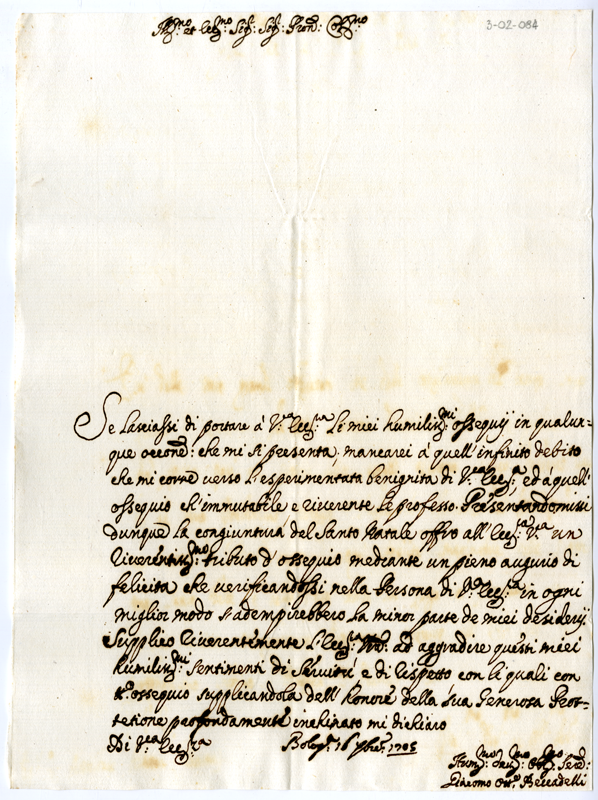 Ill.mo et Ecc.mo Sig.r Sig.r Pron: Col.mo
3-02-084
Se lasciassi di portare à V.ra Ecc.za li miei humiliss.mi ossequij in qualun-
que occone: che mi si presenta, mancarei à quell' infinito debito
che mi corre verso l'esperimentata benignita di V.ra Ecc.za, ed à quell'
ossequio ch'immutabile e riverente le professo. Presentandomisi
dunque la congiuntura del Santo Natale offro all'Ecc.za V.ra un
riverentiss.mo tributo d'ossequio mediante un pieno augurio di
felicita che verificandosi nella Persona di V.ra Ecc.za in ogni
miglior modo s'adempirebbero la minor parte de miei desiderij
Supplico riverentemente l'Ecc.za V.ra ad aggradire questi miei
humiliss.mi sentimenti di servitù e di rispetto con li quali con
ossequio supplicandola dell'honore della sua generosa Prot-
tetione profondamente inchinato mi dichiaro
Di V.ra Ecc.za
Bolog.a 16 Xbre: 1705
Hum.mo Dev.mo Obl.mo Serv:
Giacomo Ott.o Beccadelli